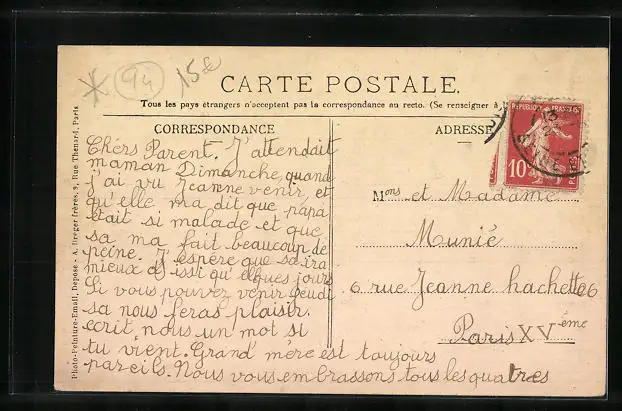 * 94 15€
CARTE POSTALE.
Tous les pays étrangers n'acceptent pas la correspondance au recto. (Se renseigner à
CORRESPONDANCE
ADRESSE
REPUBLIQUE FRANCAISE
10
POSTES
Chers Parent. J'attendait
maman Dimanche, quand
j'ai vu Jeanne venir, et
qu'elle ma dit que papa
était si malade et que
sa ma fait beaucoup de
peine. J'espère que sa ira
mieux dissi qu'elques jours
Si vous pouvez venir jeudi
sa nous feras plaisir.
ecrit nous un mot si
tu vient. Grand' mère est toujours
pareils. Nous vous embrassons tous les quatres
Mons et Madame
Munié
6 rue Jeanne hachette 6
Paris XVème
Photo-Peinture-Email, Depose - A. Breger frères, 9, Rue Thenard, Paris